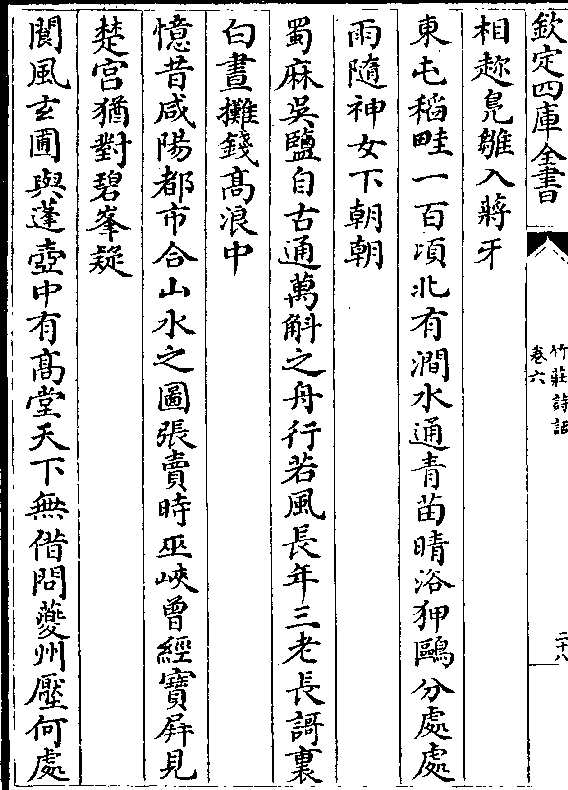 欽定四庫全書
竹莊詩話
卷六
二十八
相趂鳬雛入蔣牙
東屯稻畦一百頃北有澗水通青苗晴浴狎鷗分處處
雨隨神女下朝朝
蜀麻吳鹽自古通萬斛之舟行若風長年三老長謌裏
白晝攤錢髙浪中
憶昔咸陽都市合山水之圖張賣時巫峽曾經寶屏見
楚宫猶對碧峯疑
閬風玄圃與蓬壺中有髙堂天下無借問夔州壓何處